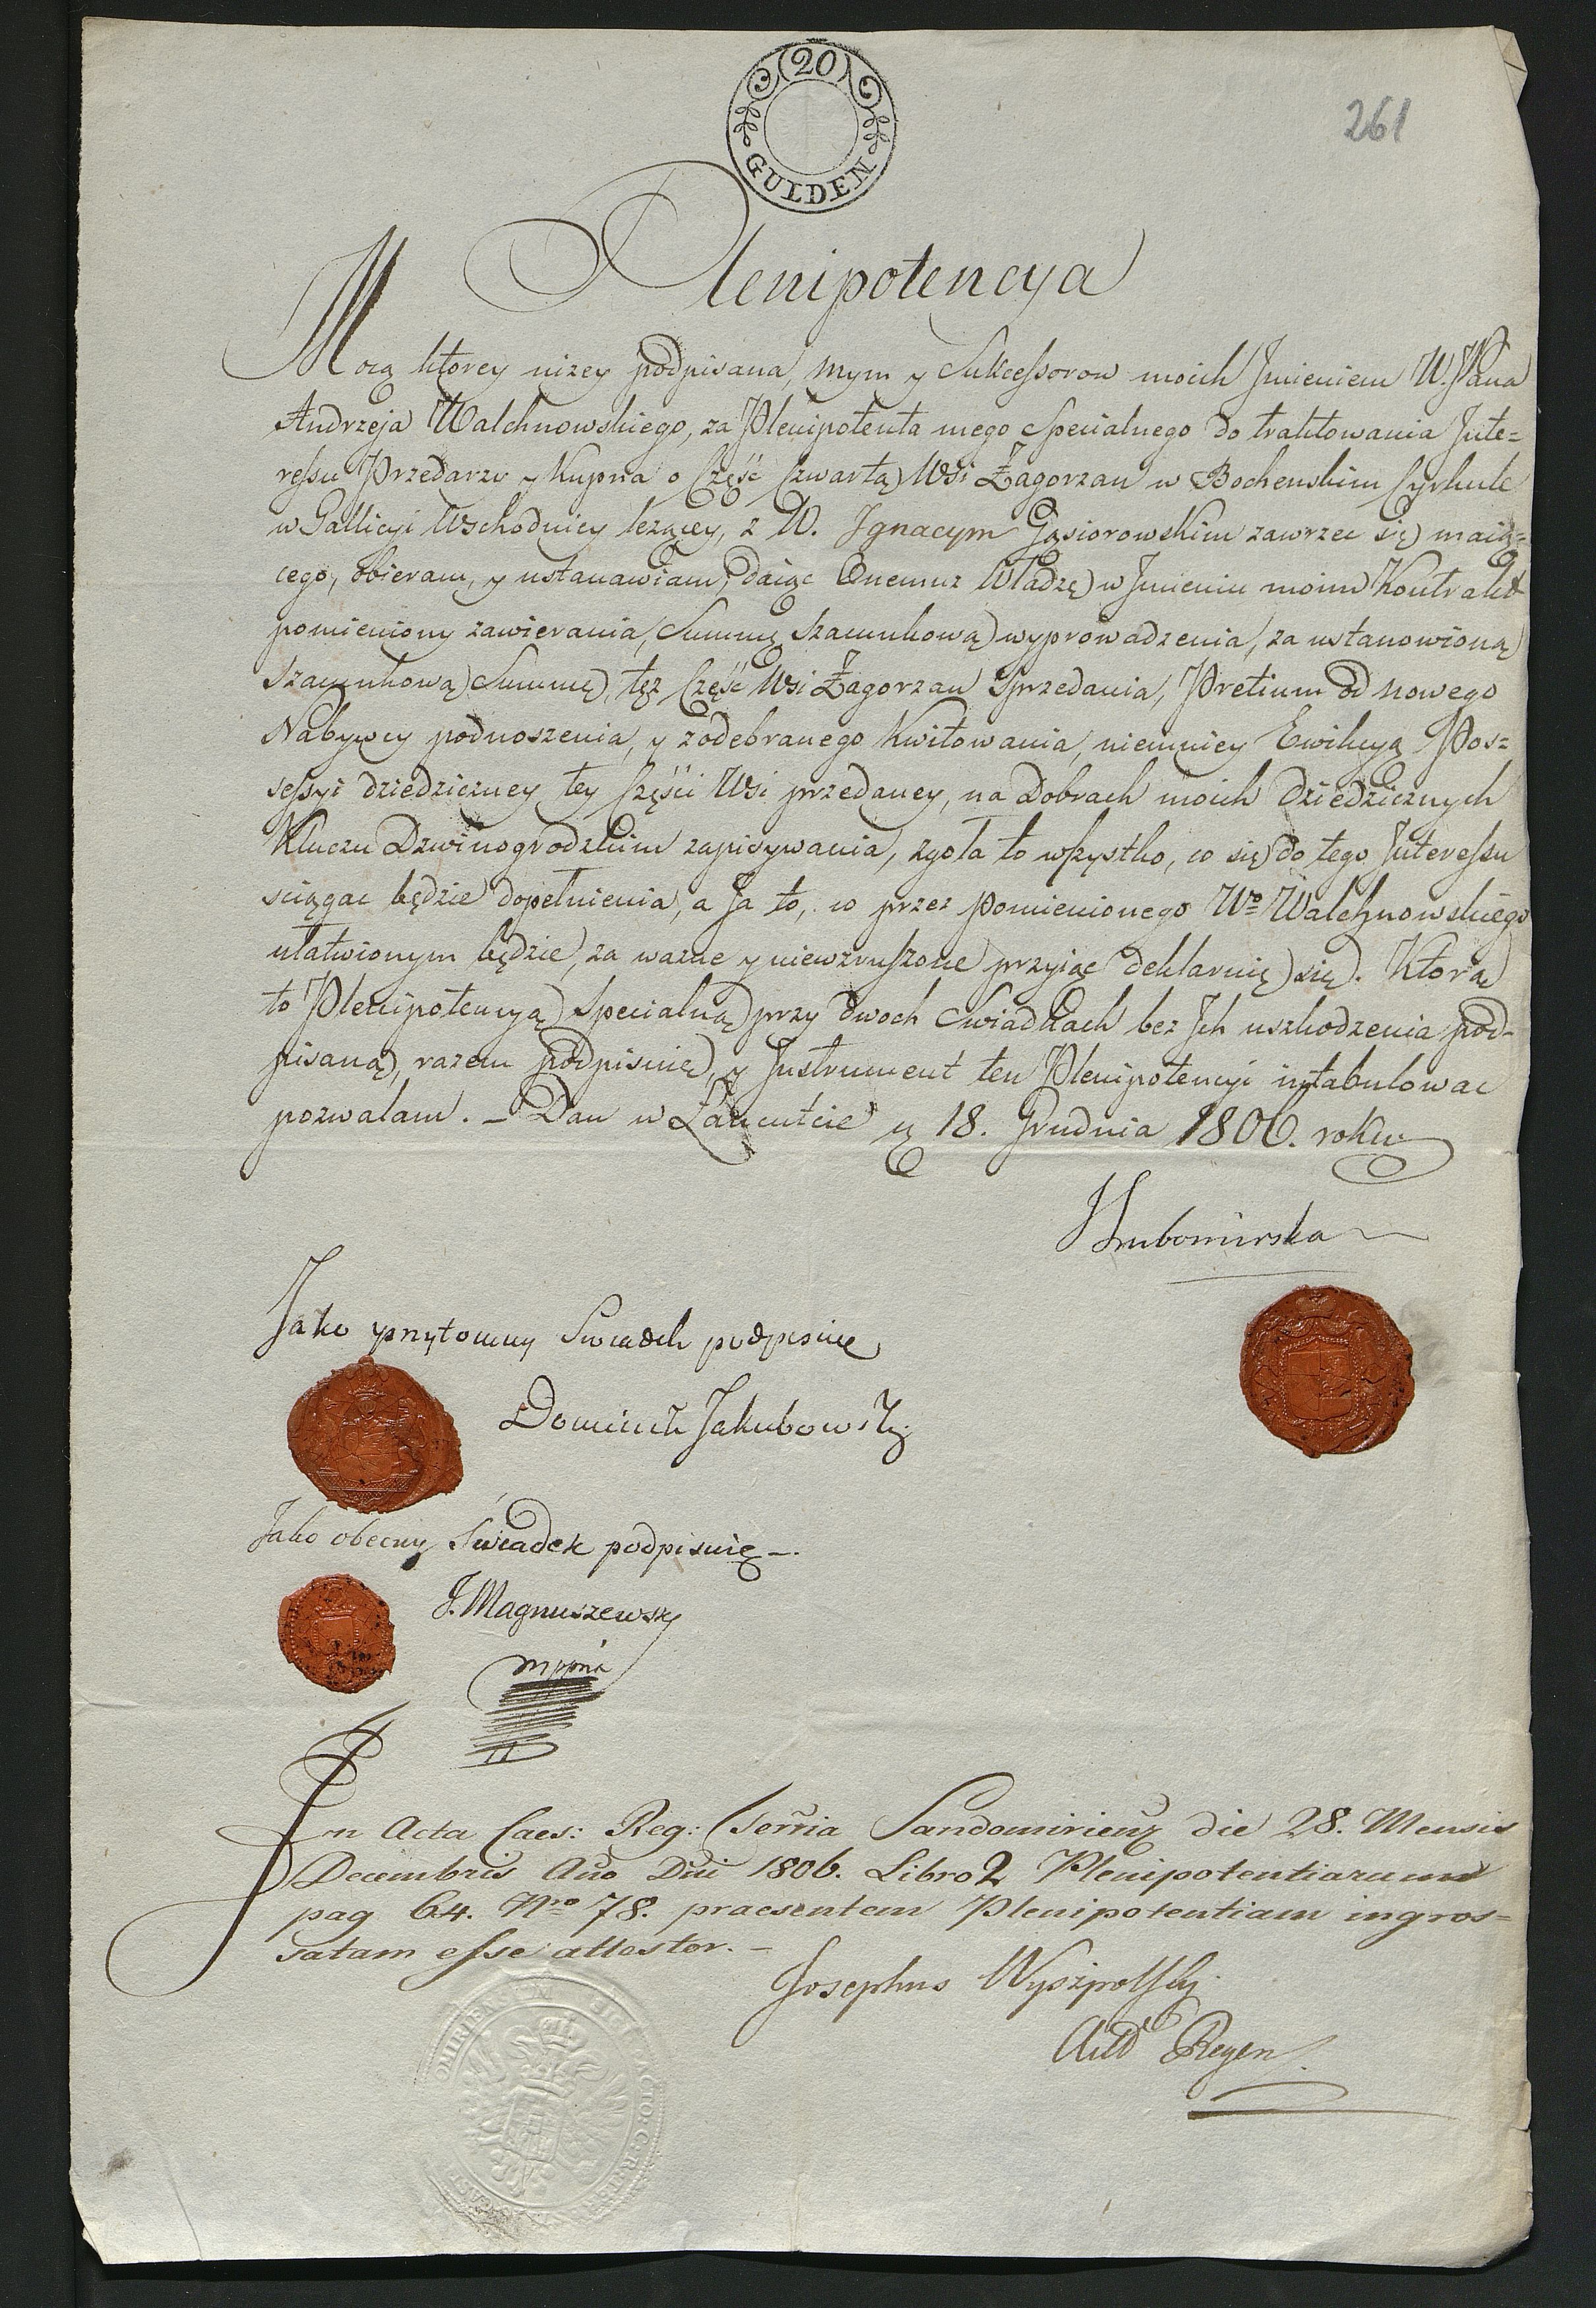 20
GULDEN
261
Plenipotencya
Mocą ktorey niżey podpisana, mym y Sukcessorow moich Jmieniem W. JPana
Andrzeja Walchnowskiego, za Plenipotenta mego Specialnego do traktowania Jnte=
ressu Przedarzy y Kupna o Część Czwartą Wsi Zagorzan w Bochenskim Cyrkule
w Gallicyi Wschodniey leżącey, z W. Jgnacym Gąsiorowskim zawrzec się maią=
cego, obieram, y ustanawiam, daiąc Onemuż Władzę w Jmieniu moim Kontrakt
pomieniony zawierania, Summę szacunkową wyprowadzenia, za ustanowioną
szacunkową Summę, tęż Część Wsi Zagorzan Sprzedania, Pretium od nowego
Nabywcy podnoszenia, y z odebranego kwitowania, niemniey Ewikcyą Pos=
sessyi dziedziczney tey Części Wsi przedaney, na Dobrach moich Dziedzicznych
Kluczu Dzwinogrodzkim zapisywania, zgoła to wszystko, co się do tego Jnteressu
sciągac będzie dopełnienia, a Ja to, co przez pomienionego Wo Walchnowskiego
ułatwionym będzie, za ważne y niewzruszone przyiąc deklaruię się. Ktorą
to Plenipotencyą Specialną przy dwoch Swiadkach bez Jch uszkodzenia pod-
pisaną, razem podpisuię, y Jnstrument ten Plenipotencyi intabulowac
pozwalam. – Dan w Łancucie d 18. Grudnia 1806. roku
Lubomirska
Jako przytomny Swiadek podpisuię
Dominik Jakubowski
Jako obecny Świadek podpisuię –.
J. Magnuszewski
mppria
In Acta Caes: Reg: Cserria Sandomiriens die 28. Mensis
Decembris Ano Dni 1806. Libro 2 Plenipotentiarum
pag 64. Nro 78. praesentem Plenipotentiam ingros=
satam esse attestor. –
Josephus
Regen